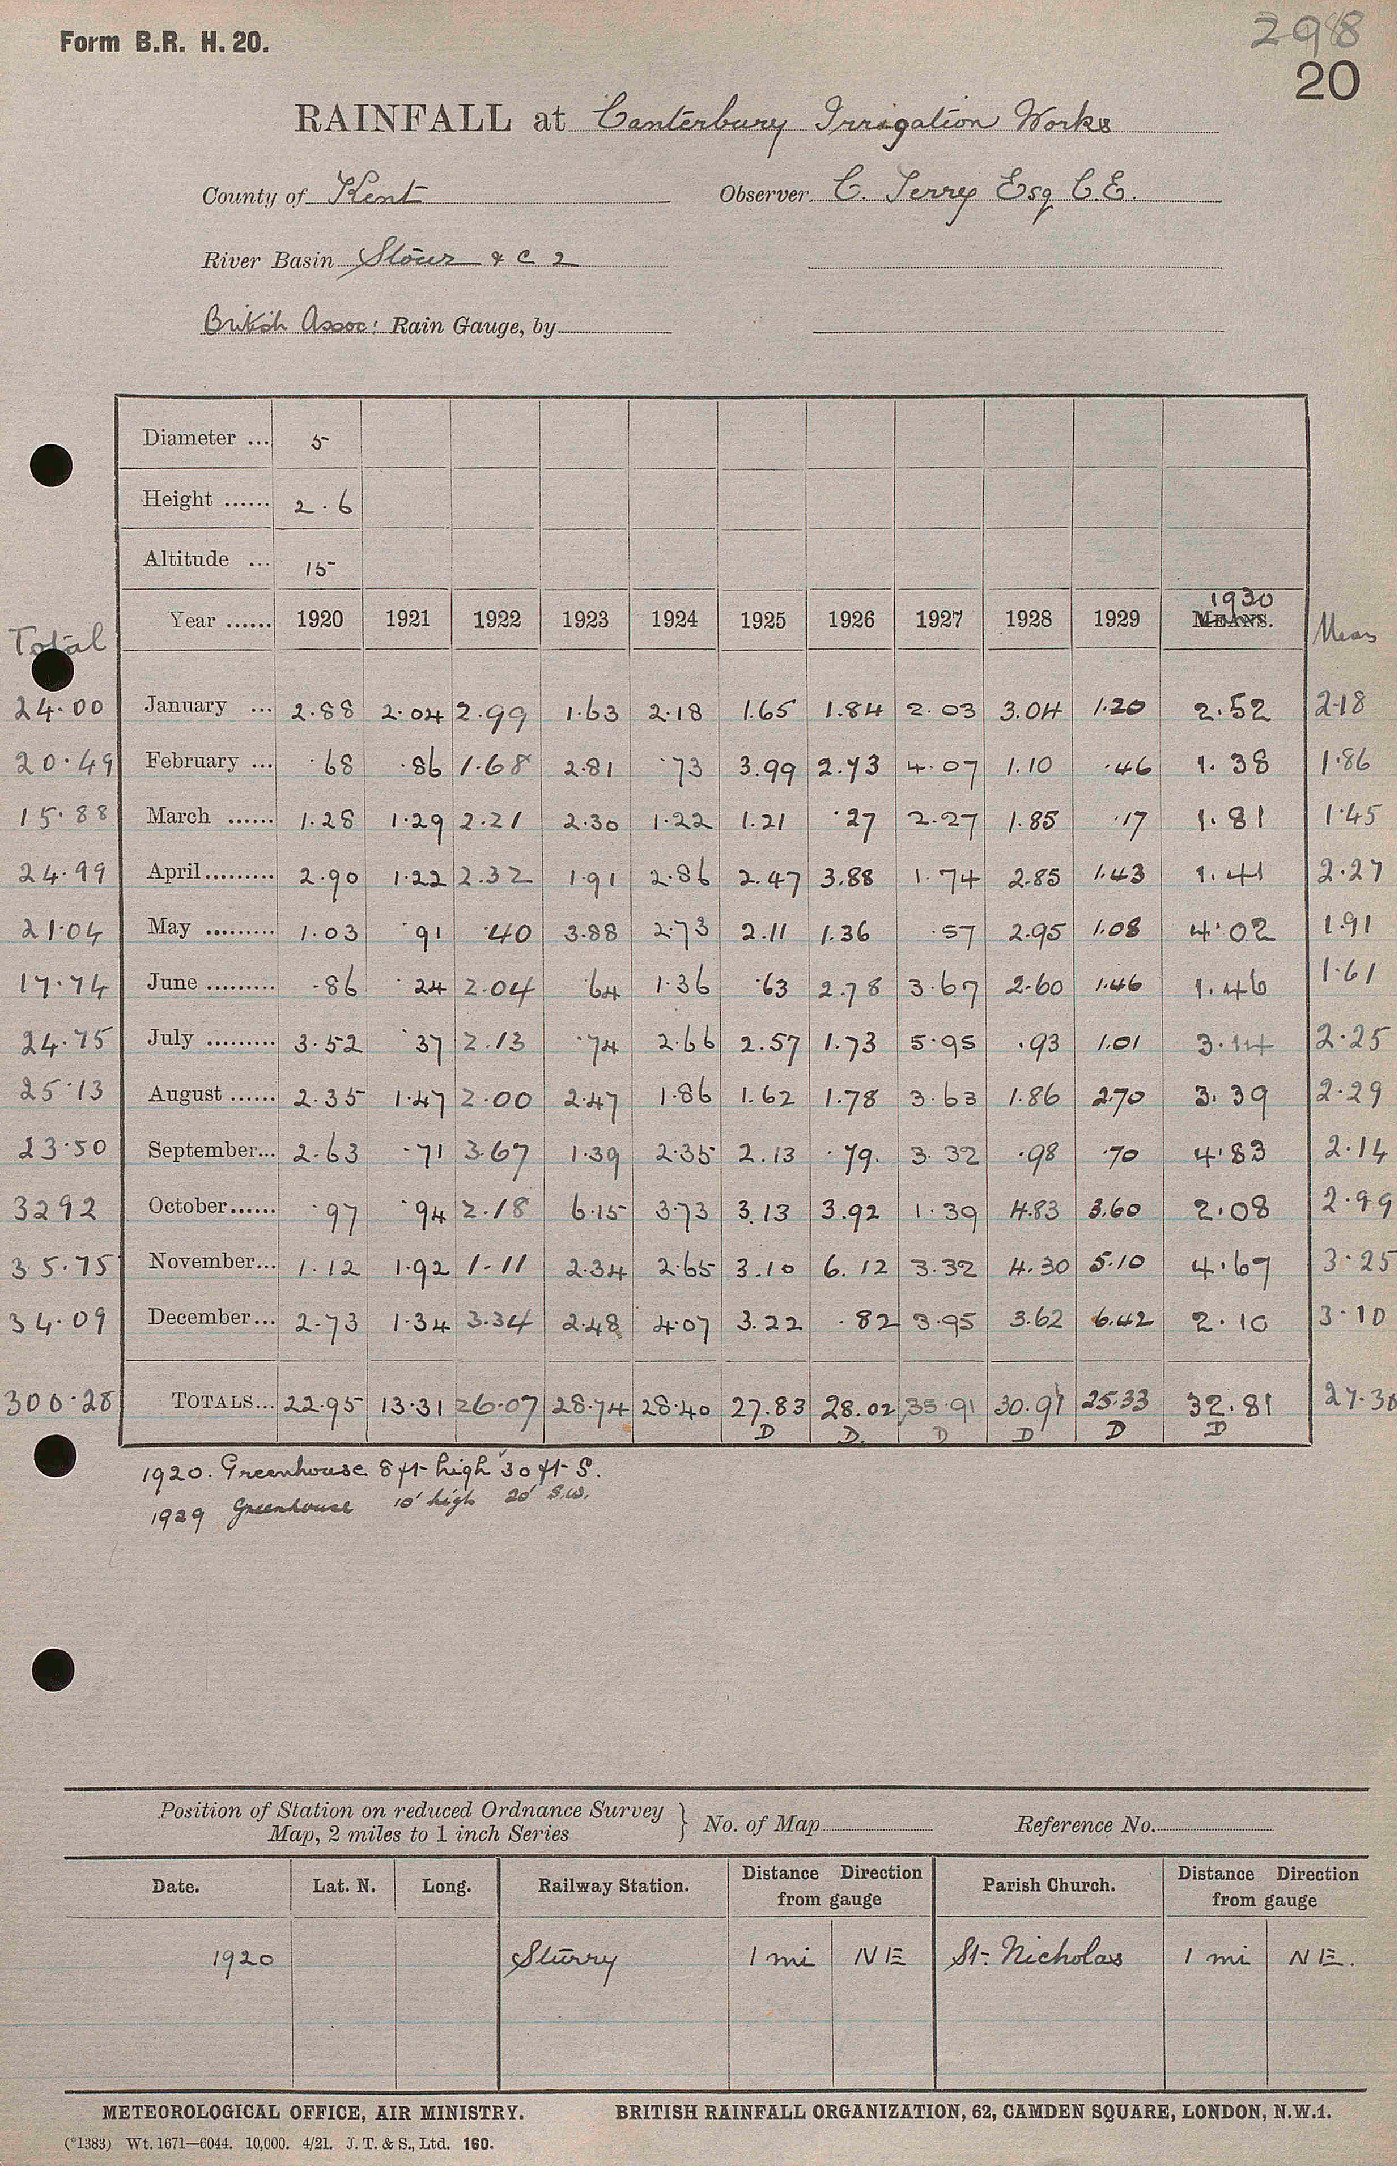 Form B.R. H. 20.
298
20
RAINFALL at Canterbury Irrigation Works
County of Kent Observer C. Terry Esq C.E.
River Basin Stour & C 2
British Assoc: Rain Gauge, by
Diameter ... 5
Height ...... 2.6
Altitude ... 15
1930
Total Year ...... 1920 1921 1922 1923 1924 1925 1926 1927 1928 1929 MEANS. Mean
24.00 January ... 2.88 2.04 2.99 1.63 2.18 1.65 1.84 2.03 3.04 1.20 2.52 2.18
20.49 February ... .68 .86 1.68 2.81 .73 3.99 2.73 4.07 1.10 .46 1.38 1.86
15.88 March ...... 1.28 1.29 2.21 2.30 1.22 1.21 .27 2.27 1.85 .17 1.81 1.45
24.99 April......... 2.90 1.22 2.32 1.91 2.86 2.47 3.88 1.74 2.85 1.43 1.41 2.27
21.04 May ......... 1.03 .91 .40 3.88 2.73 2.11 1.36 .57 2.95 1.08 4.02 1.91
17.74 June ......... .86 .24 2.04 .64 1.36 .63 2.78 3.67 2.60 1.46 1.46 1.61
24.75 July ......... 3.52 .37 2.13 .74 2.66 2.57 1.73 5.95 .93 1.01 3.14 2.25
25.13 August ...... 2.35 1.47 2.00 2.47 1.86 1.62 1.78 3.63 1.86 2.70 3.39 2.29
23.50 September... 2.63 .71 3.67 1.39 2.35 2.13 .79. 3.32 .98 .70 4.83 2.14
32 92 October...... .97 .94 2.18 6.15 3.73 3.13 3.92 1.39 4.83 3.60 2.08 2.99
35.75 November... 1.12 1.92 1.11 2.34 2.65 3.10 6.12 3.32 4.30 5.10 4.67 3.25
34.09 December... 2.73 1.34 3.34 2.48 4.07 3.22 .82 3.95 3.62 6.42 2.10 3.10
300.28 TOTALS... 22.95 13.31 26.07 28.74 28.40 27.83 28.02 35.91 30.91 25.33 32.81 27.30
D D. D D D D
1920. Greenhouse 8 ft high 30 ft S.
1929 Greenhouse 10' high 20' S.W.
Position of Station on reduced Ordnance Survey
Map, 2 miles to 1 inch Series } No. of Map Reference No.
Date. Lat. N. Long. Railway Station. Distance Direction from gauge Parish Church. Distance Direction from gauge
1920 Sturry 1 mi NE St. Nicholas 1 mi NE.
METEOROLOGICAL OFFICE, AIR MINISTRY. BRITISH RAINFALL ORGANIZATION, 62, CAMDEN SQUARE, LONDON, N.W.1.
(*1383) Wt. 1671—6044. 10,000. 4/21. J. T. & S., Ltd. 160.